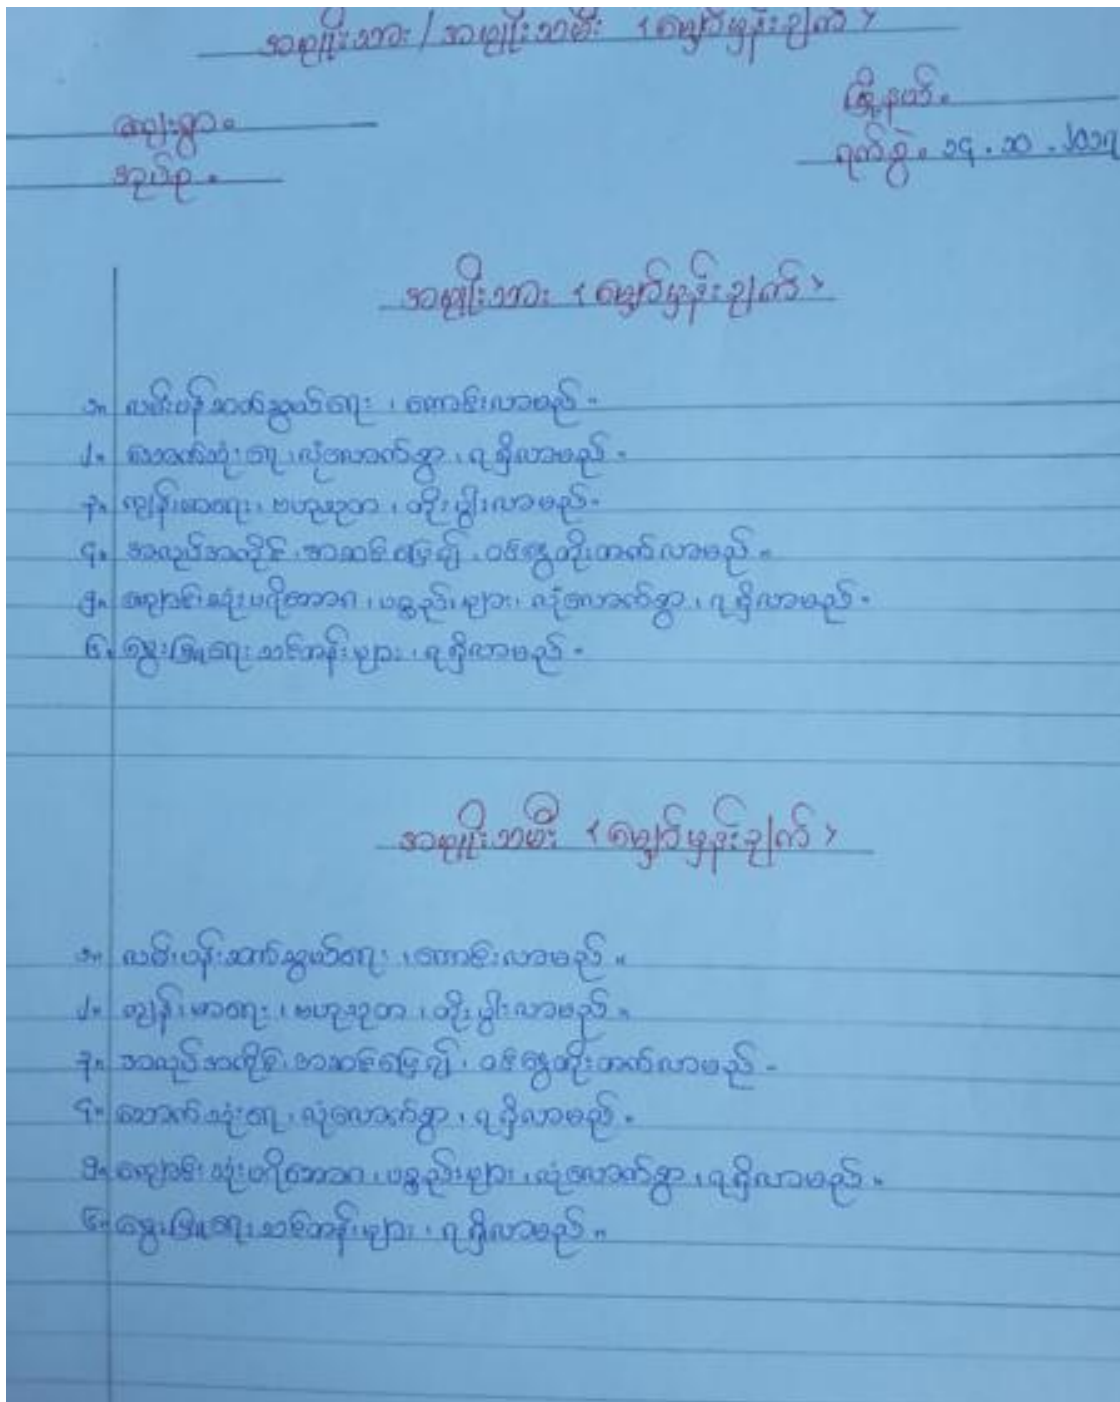 အမျိုးသား / အမျိုးသမီး < မျှော်မှန်းချက် >
မြို့နယ်။
ကျေးရွာ။
ရက်စွဲ။ ၁၄.၁၀.၂၀၁၇
အုပ်စု။
အမျိုးသား < မျှော်မှန်းချက် >
၁။ လမ်းပန်ဆက်သွယ်ရေး၊ ကောင်းလာမည်။
၂။ သောက်သုံးရေ၊ လုံလောက်စွာ၊ ရရှိလာမည်။
၃။ ကျန်းမာရေး၊ ဗဟုသုတ၊ တိုးပွါးလာမည်။
၄။ အလုပ်အကိုင်၊ အဆင်ပြေ၍၊ ဝင်ငွေတိုးတက်လာမည်။
၅။ ကျောင်းသုံးပရိဘောဂ၊ ပစ္စည်းများ၊ လုံလောက်စွာ၊ ရရှိလာမည်။
၆။ မွေးမြူရေးသင်တန်းများ၊ ရရှိလာမည်။
အမျိုးသမီး < မျှော်မှန်းချက် >
၁။ လမ်းပန်းဆက်သွယ်ရေး၊ ကောင်းလာမည်။
၂။ ကျန်းမာရေး၊ ဗဟုသုတ၊ တိုးပွါးလာမည်။
၃။ အလုပ်အကိုင်၊ အဆင်ပြေ၍၊ ဝင်ငွေတိုးတက်လာမည်။
၄။ သောက်သုံးရေ၊ လုံလောက်စွာ၊ ရရှိလာမည်။
၅။ ကျောင်းသုံးပရိဘောဂ၊ ပစ္စည်းများ၊ လုံလောက်စွာ၊ ရရှိလာမည်။
၆။ မွေးမြူရေးသင်တန်းများ၊ ရရှိလာမည်။